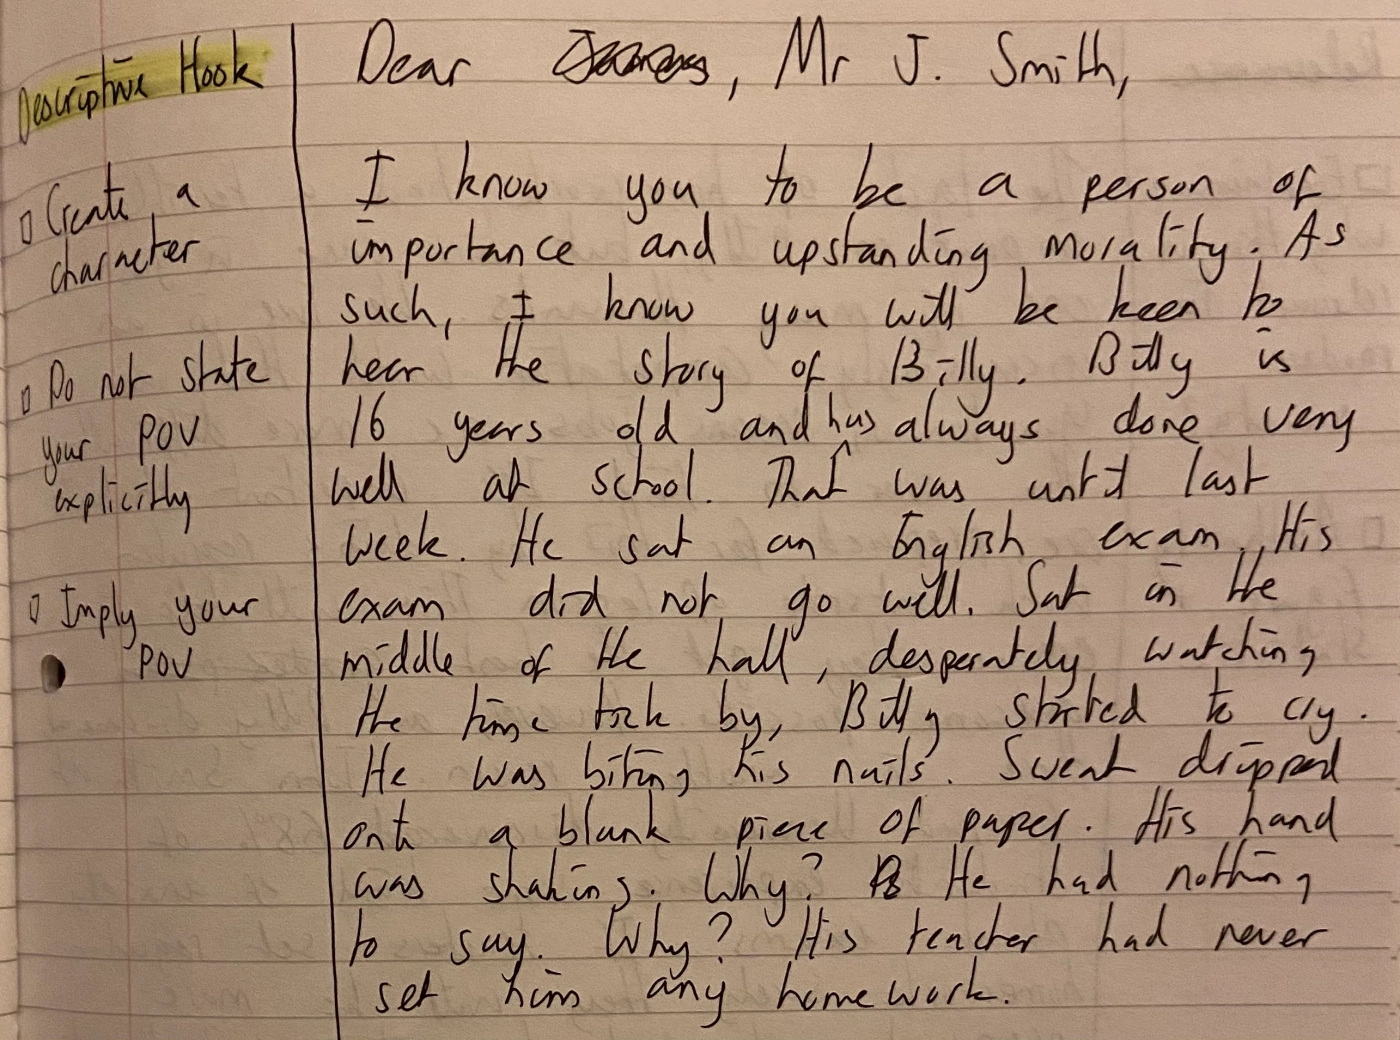 Descriptive Hook
Create a
character
Do not state
your POV
explicitly
Imply your
POV
Dear , Mr J. Smith,
I know you to be a person of
importance and upstanding morality. As
such, I know you will be keen to
hear the story of Billy. Billy is
16 years old and has always done very
well at school. That was until last
week. He sat an English exam. His
exam did not go well. Sat in the
middle of the hall, desperately watching
the time tick by, Billy started to cry.
He was biting his nails. Sweat dripped
onto a blank piece of paper. His hand
was shaking. Why? He had nothing
to say. Why? His teacher had never
set him any homework.